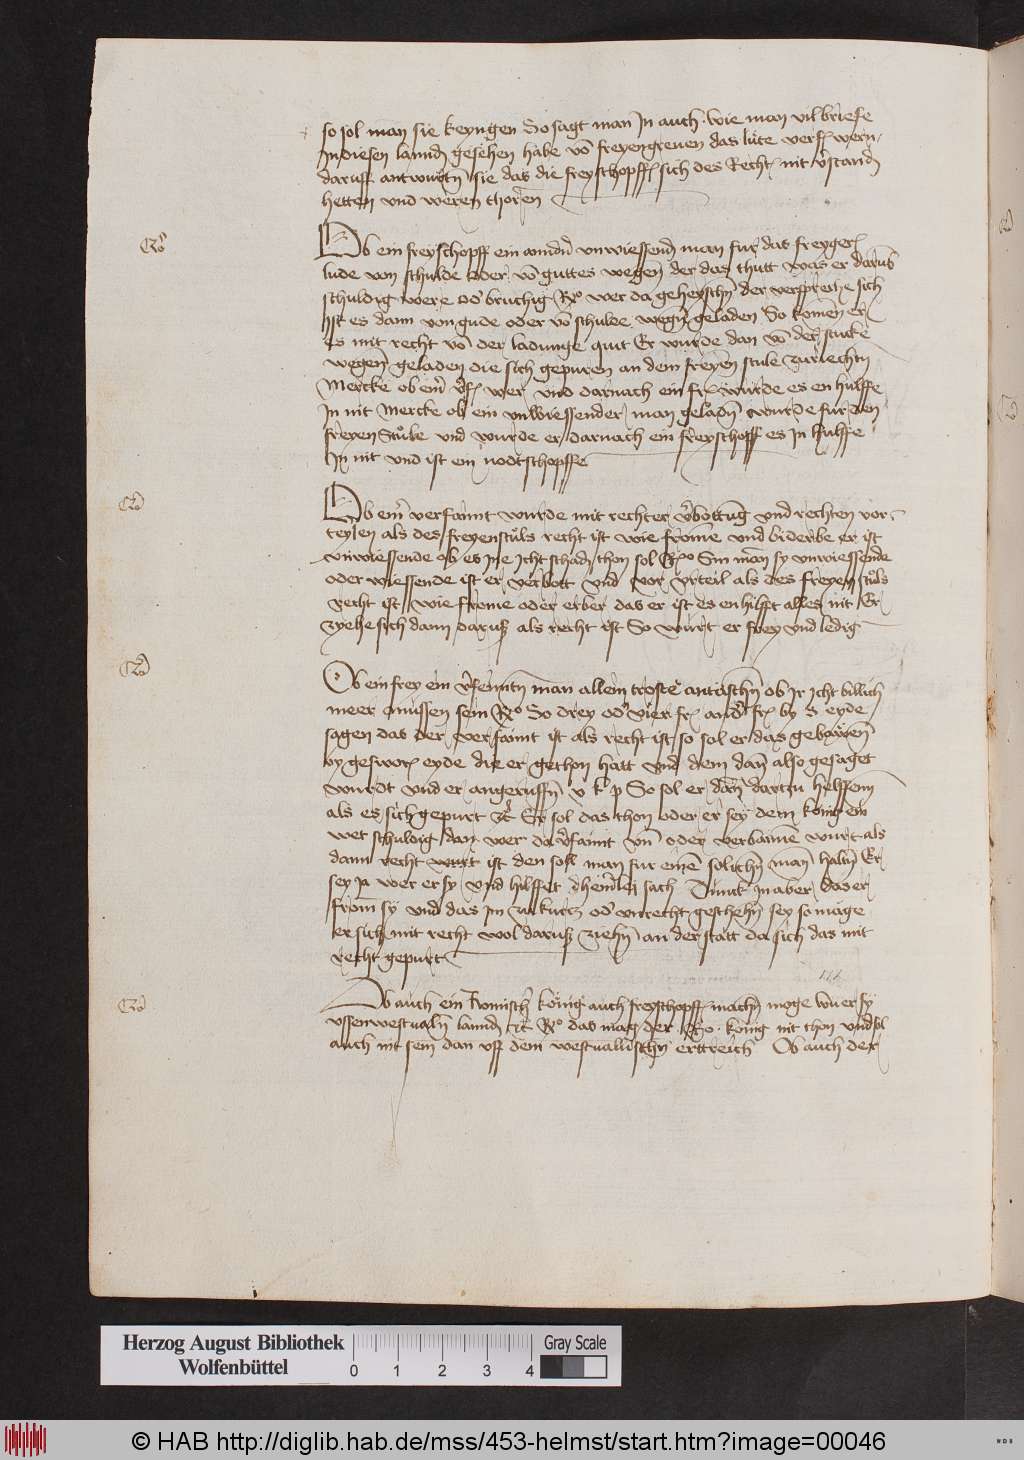 so sol man sie heyngen So sagt man In auch · wie man vil briefe
In diesen lannd gesehen habe vō freyengreuen das lüte verff wern
daruff antwurtn sie das die freyschopff sich des Recht nit v̉stand
hetten und weren thoren
Qo
Ob ein freyschopff ein annder unwiessend man fur das freyger
lude van schulde oder vō guttes wegen der das thutt was er darūb
schuldig were od bruchig Ro wer da geheyschn der verspreche sich
ist es dann von gude oder vō schulde wegn geladen So komen er
es mit recht vō der ladunge quit Er wurde dan vō der stucke
wegen geladen die sich gepuren an dem freyen stule zuriechtn
Mercke ob ein v̉f wer und darnach ein fr wurde es en hulffe
In nit Mercke ob ein unwiessender man geladn wurde fur den
freyen Stule und wurde er darnach ein freyschoff es in hulffe
In nit und ist ein nodtschopffe
Qo
Ob ein verfamt wurde mit rechter v̉bottung und rechten vor
teylen als des freyenstůls recht ist wie frome und biderbe er ist
unwiessende ob es ine icht schadn thon sol Ro Ein man sy unwiessende
oder wiessende ist er verbott und vor vrteil als des freyen stůls
recht ist wie frome oder erber das er ist es en hilfet alles nit Er
zyehe sich dann daruß als recht ist So wurt er frey und ledig
Qo
Ob ein frey ein v̉femtn man allein troste antastn ob Ir icht billich
meer mussen sein Ro So drey od vier fr and fr by 3 eyde
sagen das der verfamt ist als recht ist so sol er das gebauen
by geswor eyde die er gethon hatt und dem dan also gesaget
wurdt und er angeruffn v k p So sol er dan dartzu helffenn
als es sich gepurt zc Er sol das thon oder er sey dem konig ein
wet schuldig dan wer da v̉famt vn oder verbannē wurt als
dann recht wurt ist den soll man fur einē solichn man haltn Er
sey Ja wer er sy und hilffet dhemlei sach Dunck In aber das er
from sy und das im zu kurtz od unrecht geschehn sey so mage
er sich mit recht wol daruß ziehn an der statt da sich das mit
recht gepurt
Qo
Ob auch ein Romisch konig auch freyschopff machn moge wu er sy
ussenwestualn lannd zc Ro das mag der Ro · konig nit thon und sol
auch nit sein dan uff dem westuallischn erttreich Ob auch der
Herzog August Bibliothek
Wolfenbüttel
0 1 2 3 4
Gray Scale
© HAB http://diglib.hab.de/mss/453-helmst/start.htm?image=00046